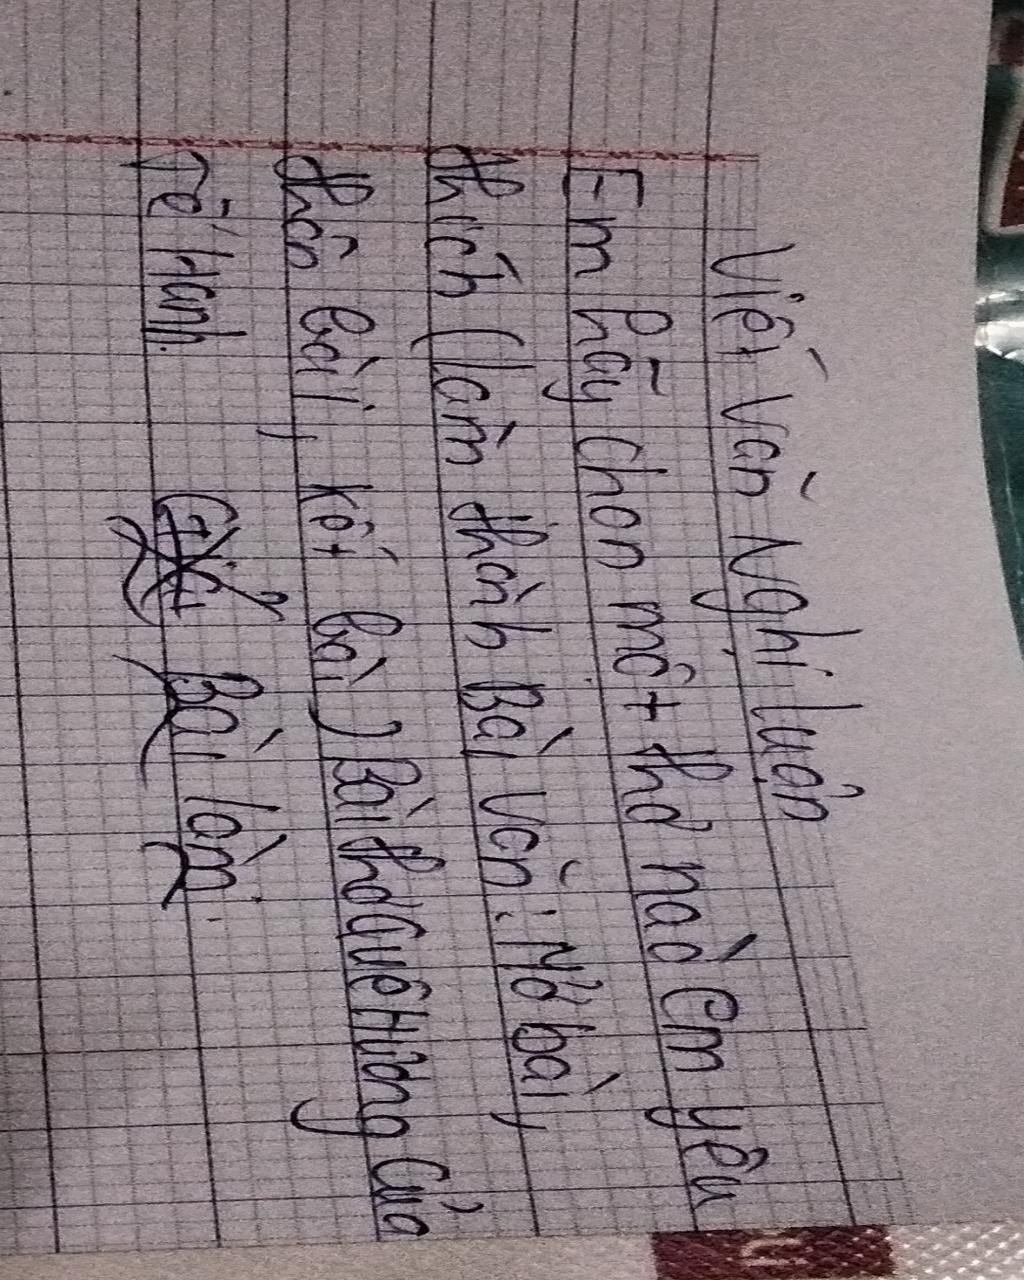 Viết Văn Nghị luận
Em hãy chọn một thơ nào em yêu
thích (làm thành Bài Văn: Mở bài,
thân bài, kết bài) Bài thơ Quê Hương của
Tế Hanh.
Bài làm.